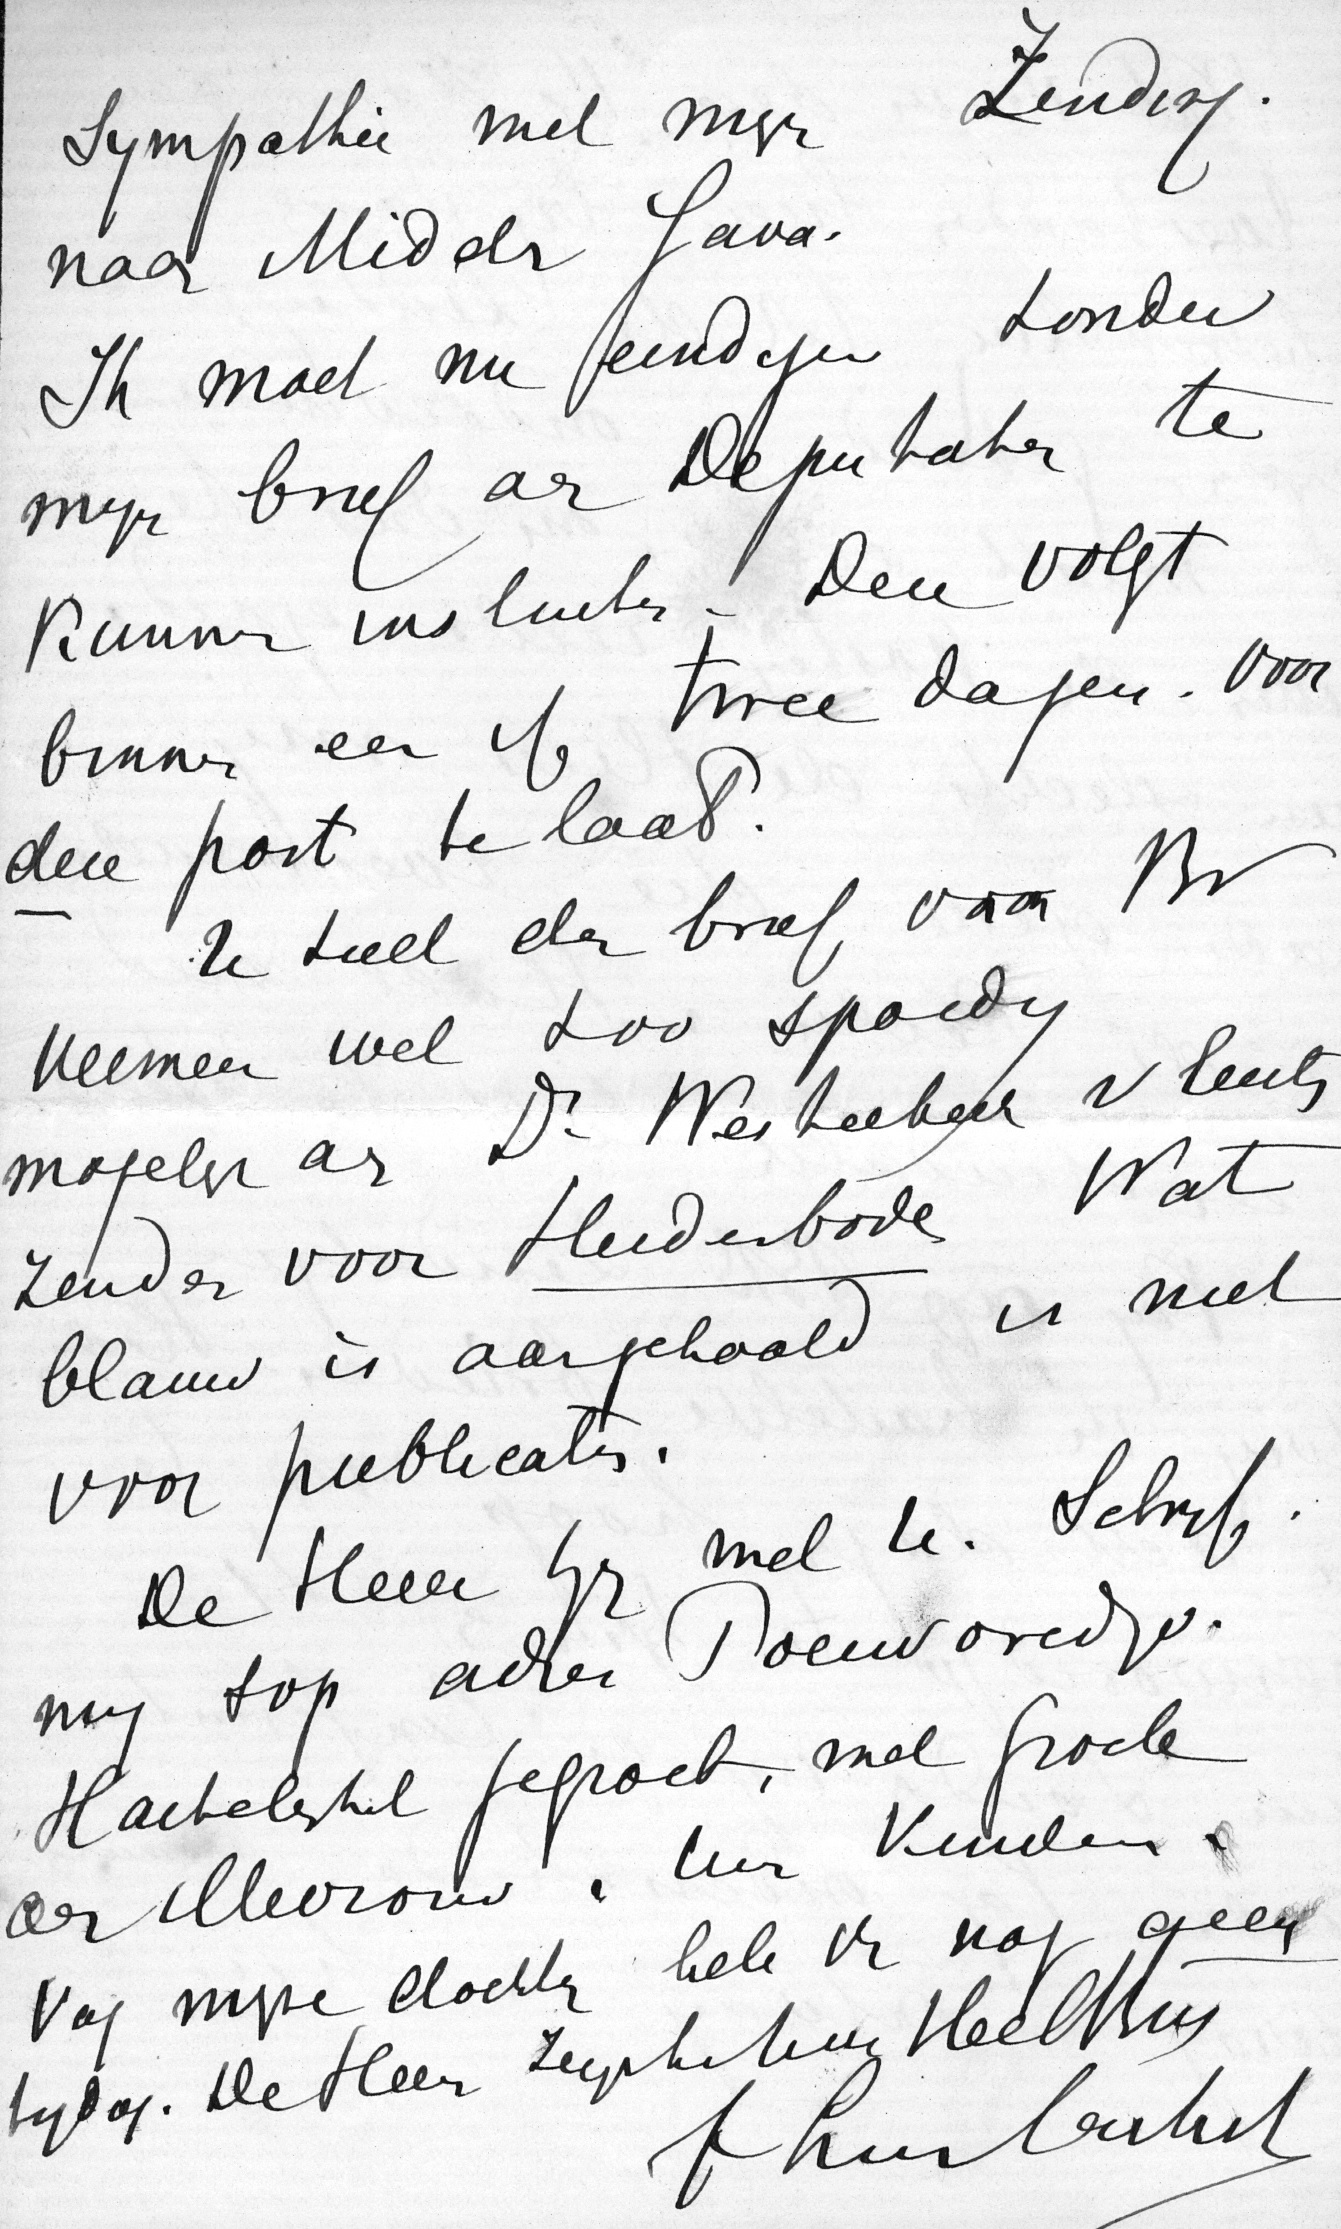 Sympathie met mijn Zending.
naar Midden Java.
Ik moet nu eindigen zonder
mijn brief aan Deputaten te
kunnen insluiten. Deze volgt
binnen een of twee dagen. Voor
deze post te laat.
U zult den brief van Br
wel zoo spoedig
mogelijk aan Ds
zenden voor Heidenbode Wat
blauw is aangehaald is niet
voor publicatie.
De Heer zij met U. Schrijf.
mij s.v.p. adres Poerworedjo.
Hartelijk gegroet, met groete
aan Mevrouw. Uw Kinderen.
Van mijne dochter heb ik nog geen
tijding. De Heer zij